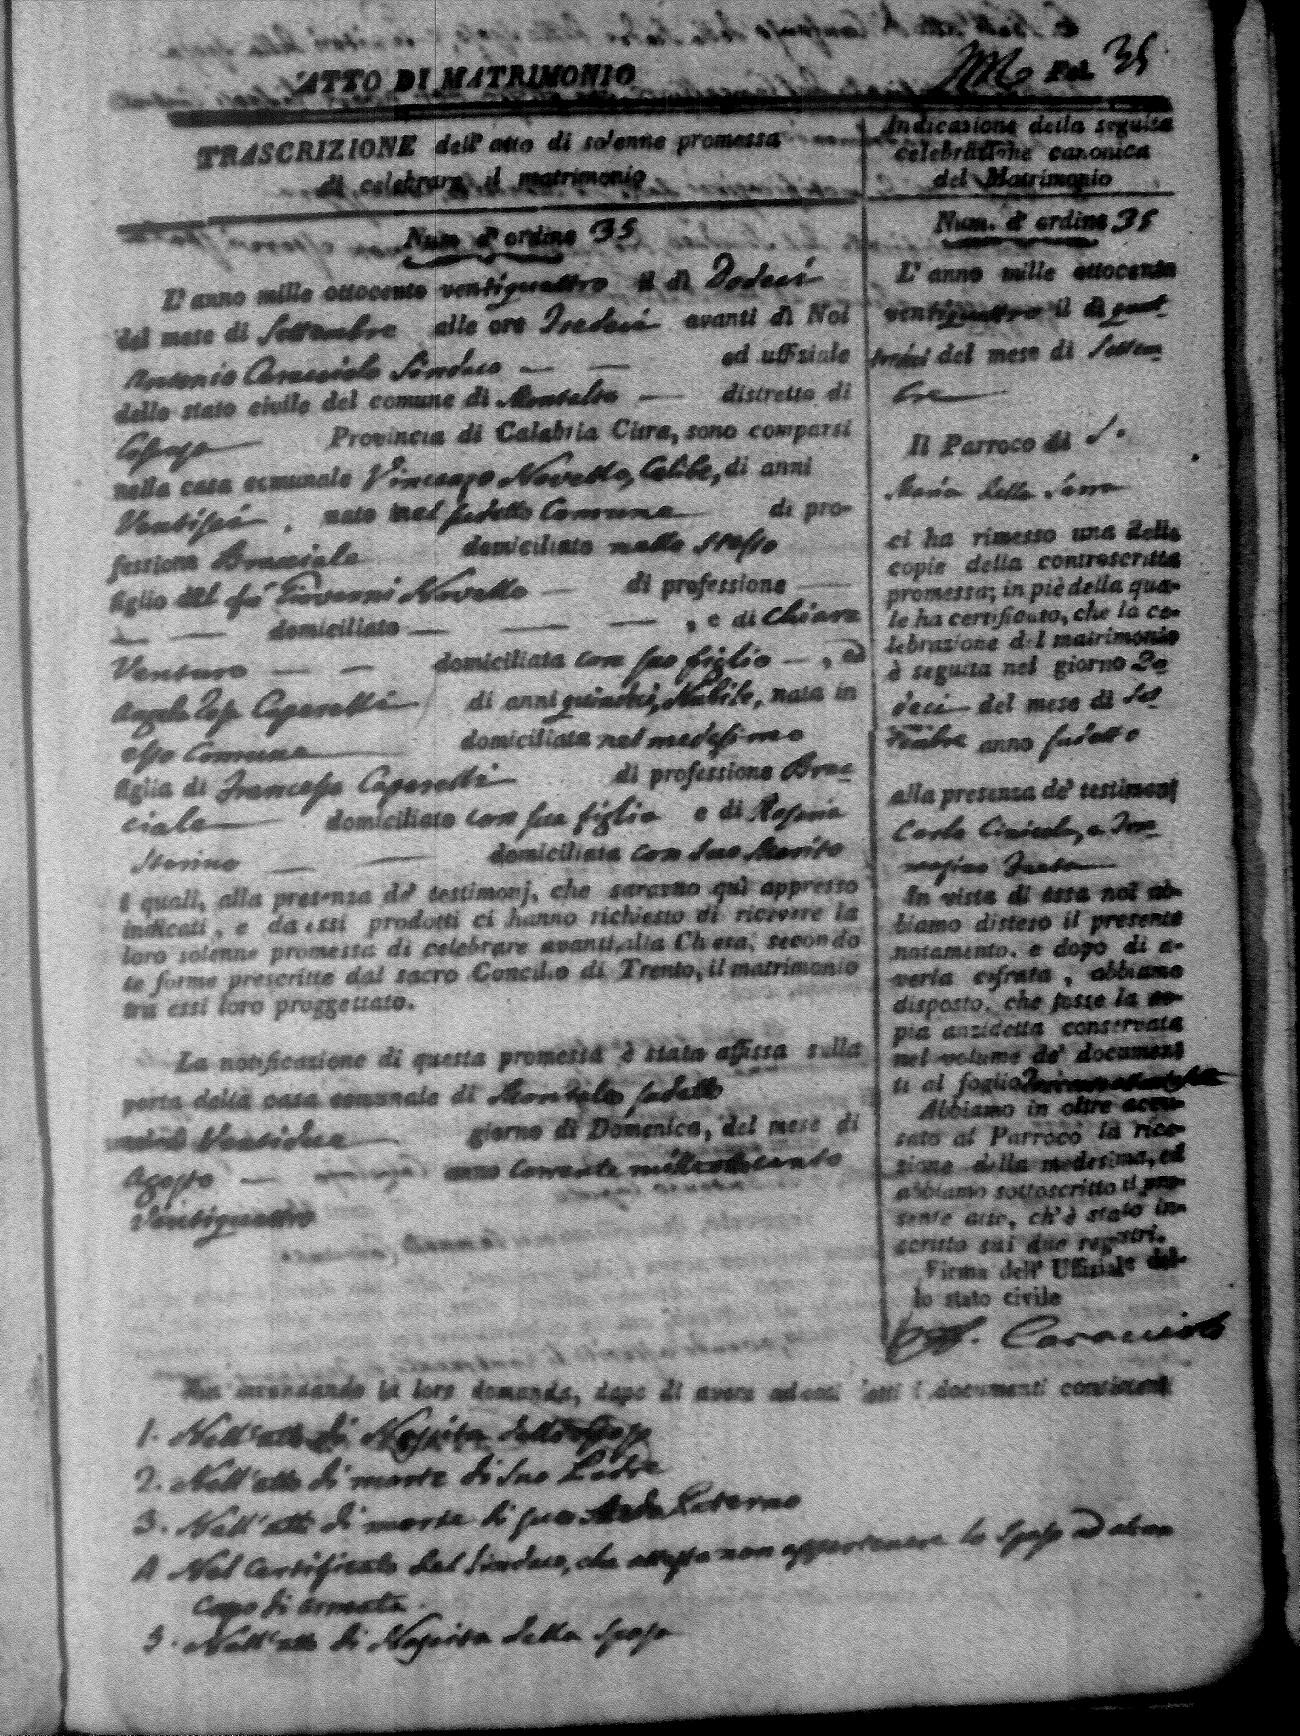 ATTO DI MATRIMONIO
Fol. 35
TRASCRIZIONE dell' atto di solenne promessa
di celebrare il matrimonio
Num. d' ordine 35
L' anno mille ottocento ventiquattro il dì Dodeci
del mese di Settembre alle ore Tredeci avanti di Noi
Antonio Caracciolo Sindaco ed uffiziale
dello stato civile del comune di Montalto distretto di
Cosenza Provincia di Calabria Citra, sono comparsi
nella casa comunale Vincenzo Novello, Celibe, di anni
Ventisei, nato nel sudetto Comune di pro-
fessione Bracciale domiciliato nello stesso
figlio del fù Giovanni Novello di professione
domiciliato , e di Chiara
Venturo domiciliata con suo figlio , ed
Angela Caparelli di anni quindici, Nubile, nata in
esso Comune domiciliata nel medesimo
figlia di Francesco Caparelli di professione Brac-
ciale domiciliato con sua figlia e di Rosaria
domiciliata con suo Marito
i quali, alla presenza de' testimonj, che saranno quì appresso
indicati, e da essi prodotti ci hanno richiesto di ricevere la
loro solenne promessa di celebrare avanti alla Chiesa, secondo
le forme prescritte dal sacro Concilio di Trento, il matrimonio
tra essi loro proggettato.
La notificazione di questa promessa è stata affissa sulla
porta della casa comunale di Montalto sudetto
Ventidue giorno di Domenica, del mese di
Agosto anno corrente milleottocento
Ventiquattro
Indicazione della seguita
celebrazione canonica
del Matrimonio
Num. d' ordine 35
L' anno mille ottocento
ventiquattro il dì quat-
tordici del mese di Settem-
bre
Il Parroco di S.
Maria della Serra
ci ha rimesso una delle
copie della controscritta
promessa; in piè della qua-
le ha certificato, che la ce-
lebrazione del matrimonio
è seguita nel giorno Do-
deci del mese di Set-
tembre anno sudetto
alla presenza de' testimonj
Carlo e Tom-
In vista di essa noi ab-
biamo disteso il presente
notamento. e dopo di a-
verla cifrata, abbiamo
disposto, che fosse la co-
pia anzidetta conservata
nel volume de' document
ti al foglio
Abbiamo in oltre accu-
sato al Parroco la rice-
zione della medesima, ed
abbiamo sottoscritto il pre-
sente atto, ch' è stato in-
scritto sui due registri.
Firma dell' Uffiziale del-
lo stato civile
Caracciolo
la loro domanda, dopo di avere fatti i documenti consistenti
1. Nell'atto di Nascita dello Sposo
2. Nell'atto di morte di suo Padre
3. Nell'atto di morte di suo Avolo Paterno
4 Nel Certificato del Sindaco, che attesta non appartenere lo Sposo ad alcun
Corpo di armata
5. Nell'atto di Nascita della Sposa